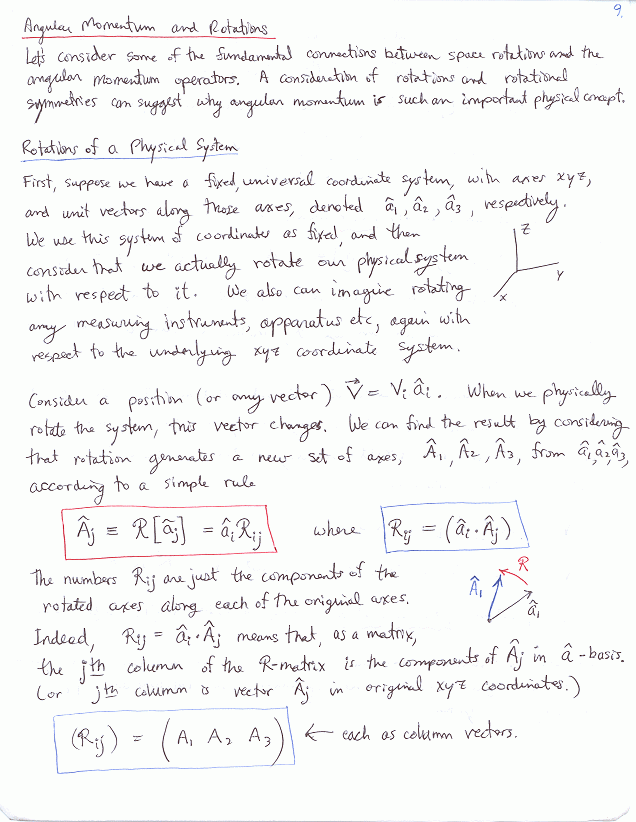 9.
Angular Momentum and Rotations
Let's consider some of the fundamental connections between space rotations and the
angular momentum operators. A consideration of rotations and rotational
symmetries can suggest why angular momentum is such an important physical concept.
Rotations of a Physical System
First, suppose we have a fixed, universal coordinate system, with axes xyz,
and unit vectors along those axes, denoted â₁, â₂, â₃, respectively.
We use this system of coordinates as fixed, and then
consider that we actually rotate our physical system
with respect to it. We also can imagine rotating
any measuring instruments, apparatus etc, again with
respect to the underlying xyz coordinate system.
z
y
x
Consider a position (or any vector) V⃗ = Vᵢ âᵢ. When we physically
rotate the system, this vector changes. We can find the result by considering
that rotation generates a new set of axes, Â₁, Â₂, Â₃, from â₁, â₂, â₃,
according to a simple rule
Âⱼ ≡ R[âⱼ] = âᵢRᵢⱼ where Rᵢⱼ = (âᵢ·Âⱼ)
The numbers Rᵢⱼ are just the components of the
rotated axes along each of the original axes.
R
Â₁
â₁
Indeed, Rᵢⱼ = âᵢ·Âⱼ means that, as a matrix,
the jth column of the R-matrix is the components of Âⱼ in â-basis.
(or jth column is vector Âⱼ in original xyz coordinates.)
(Rᵢⱼ) = (A₁ A₂ A₃) ← each as column vectors.